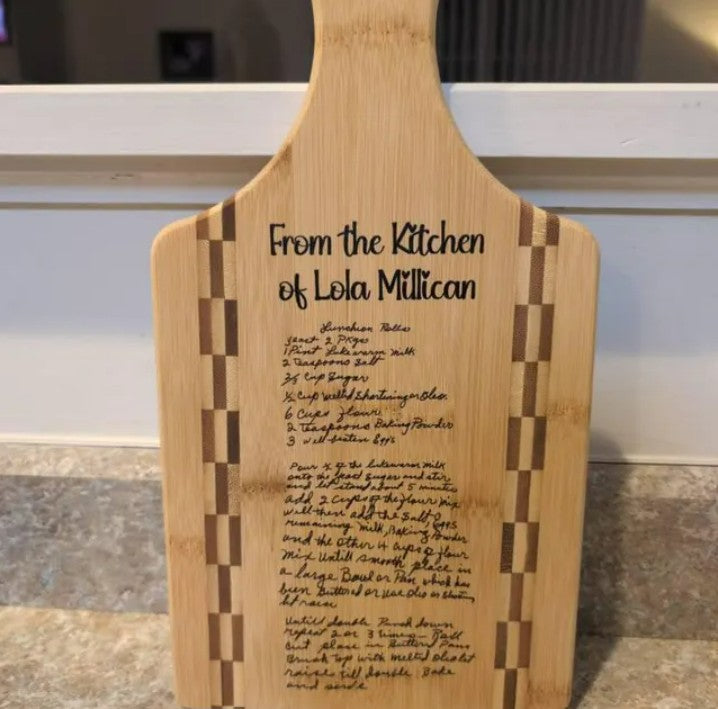 From the Kitchen
of Lola Millican
Luncheon Rolls
yeast 2 Pkgs
1 Pint Lukewarm Milk
2 Teaspoons Salt
Cup Sugar
½ Cup Melted Shortening or Oleo
6 Cups flour
2 Teaspoons Baking Powder
3 well beaten Eggs
Pour ½ of the lukewarm milk
onto the yeast Sugar and stir
and let stand about 5 minutes
add 2 Cups of the flour mix
well then add the Salt, Eggs
remaining Milk, Baking Powder
and the other 4 Cups of flour
Mix Untill smooth place in
a large Bowl or Pan which has
been Buttered or Use Oleo or Shortning
let raise
Untill double Punch down
repeat 2 or 3 times Roll
Cut place in Butterd Pans
Brush Top with melted Oleo let
raise till double Bake
and serve